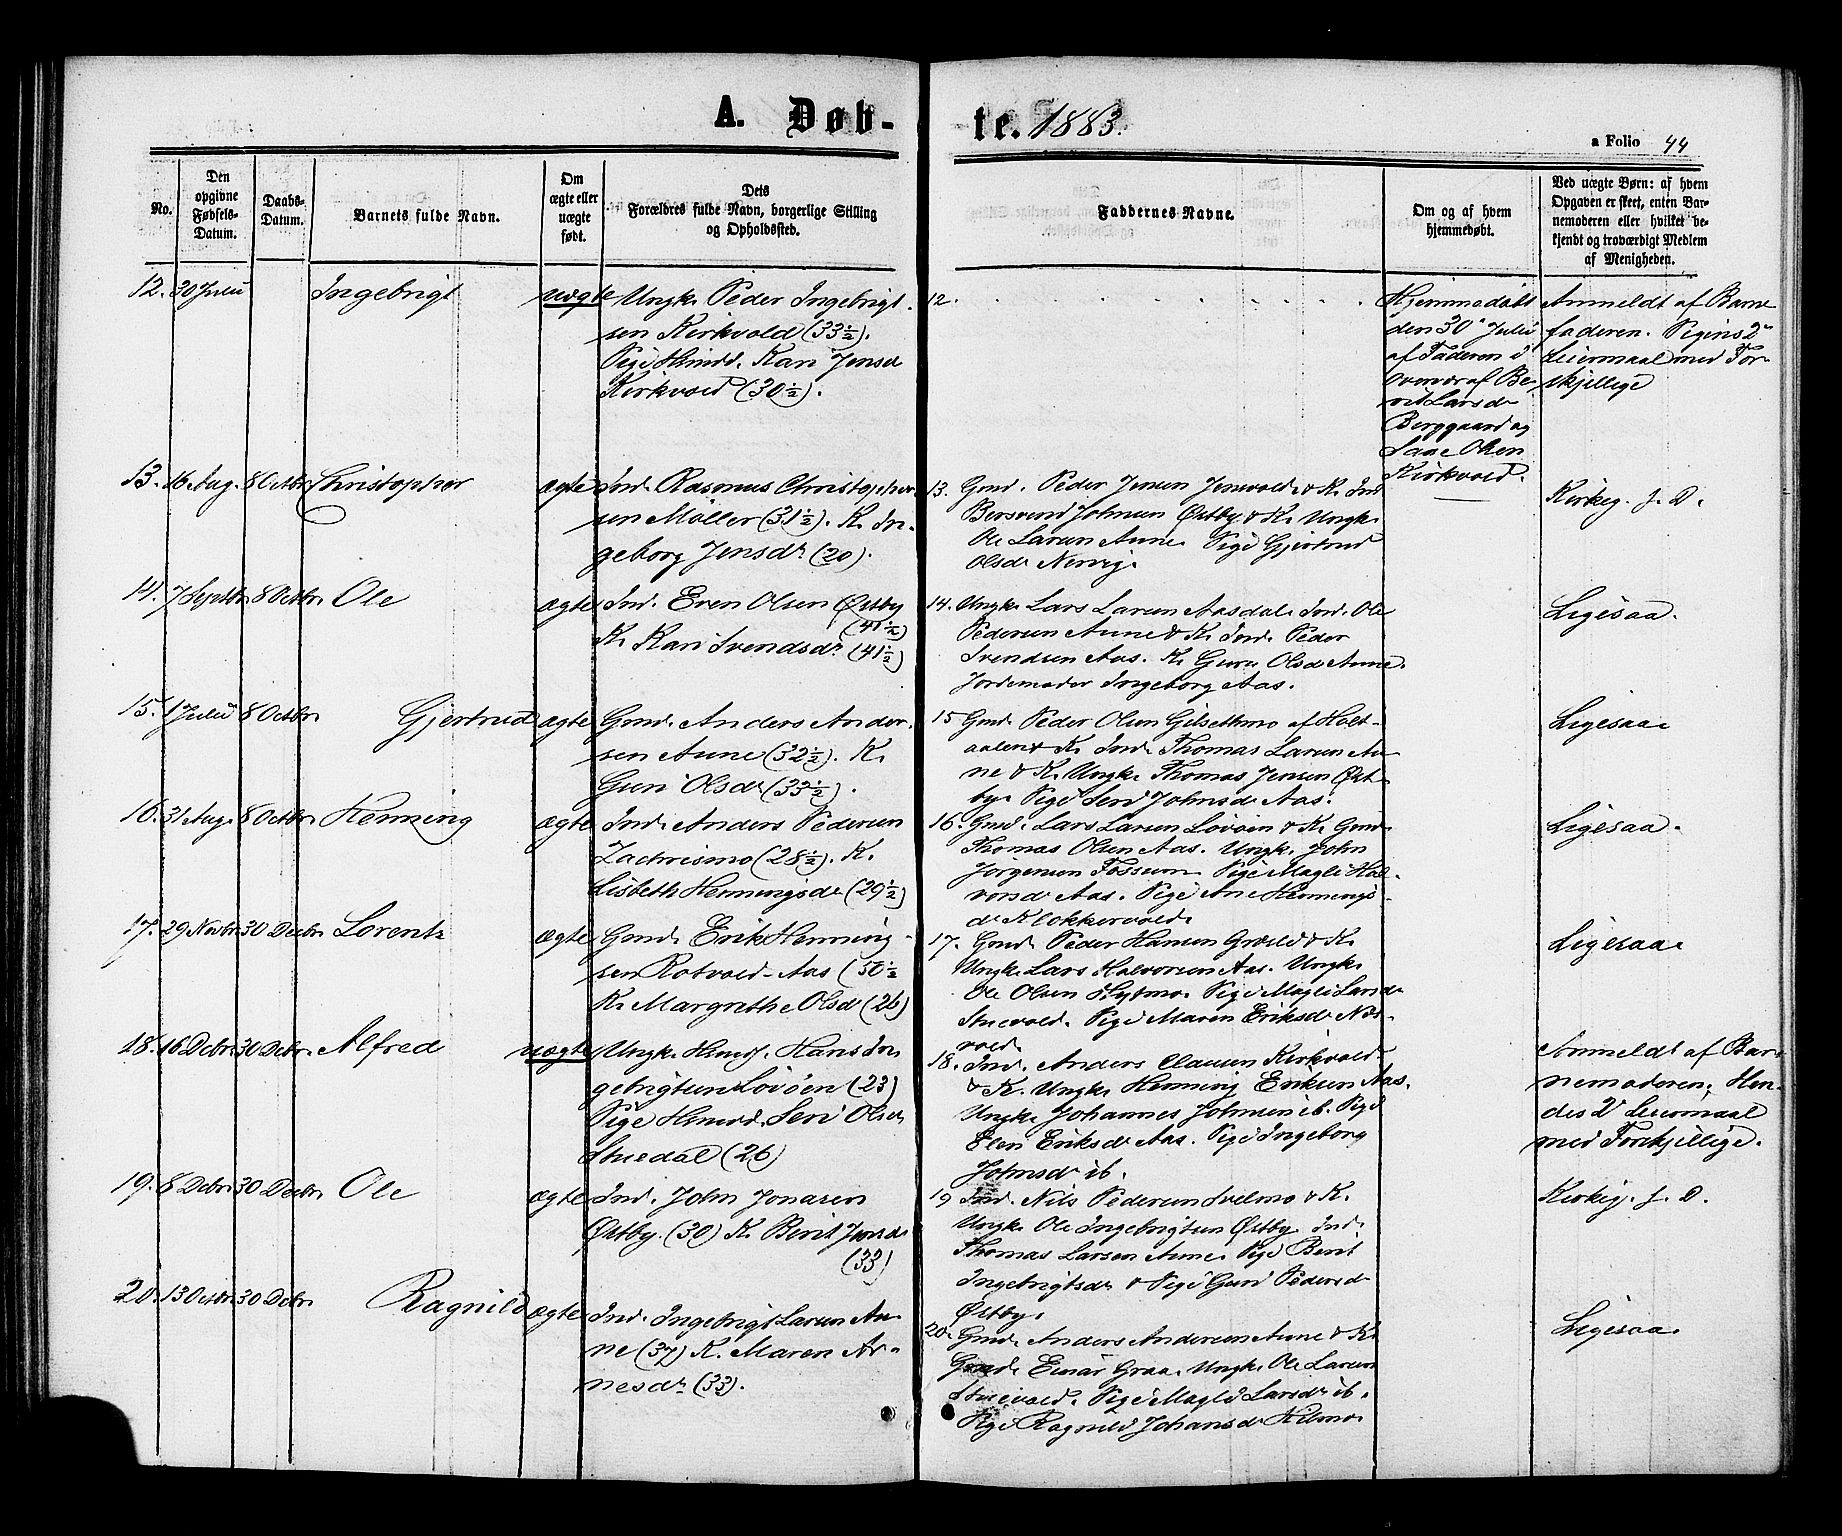 A. Døb-
te. 1883.
a Folio 44
No.
Den
opgivne
Fødsels-
Datum.
Daabs-
Datum.
Barnets fulde Navn.
Om
ægte eller
uægte
født.
Dets
Forældres fulde Navn, borgerlige Stilling
og Opholdssted.
Faddernes Navne.
Om og af hvem
hjemmedøbt.
Ved uægte Børn: af hvem
Opgaven er skeet, enten Bar-
nemoderen eller hvilket be-
kjendt og troværdigt Medlem
af Menigheden.
12. 30 Juli Ingebrigt uægte
Ungk. Peder Ingebrigt-
sen Kirkvold (33½).
Pige Hmd. Kari Jensd
Kirkvold (30½).
12.
Hjemmedøbt
den 30 Juli
af Faderen i
Overvær af Be-
rit Larsd
Berggaard og
Olsen
Kirkvold.
Anmeldt af Barne
faderen. Pigens 2
Leiermaal med For-
skjellige
13. 16 Aug. 8 Octbr. Christopher ægte
Ind. Rasmus Christopher
sen Møller (31½). K. In-
geborg Jensdr (20).
13. Gmd. Peder Jensen Jensvold & K. Ind
Bersvend Johnsen Østby & K. Ungk.
Ole Larsen Aune. Pige Gjertrud
Olsd. Nervig.
Kirkeg. f. D.
14. 7 Septbr. 8 Octbr. Ole ægte
Ind. Even Olsen Østby
(41½)
K. Kari Svendsdr (41½)
14. Ungk. Lars Larsen Aasdal. Ind. Ole
Pedersen Aune & K. Ind. Peder
Svendsen Aas. K. Guru Olsd Aune.
Jordemoder Ingeborg Aas.
Ligesaa.
15. 1 Juli 8 Octbr. Gjertrud ægte
Gmd. Anders Ander-
sen Aune (32½). K.
Guri Olsd. (33½).
15 Gmd. Peder Olsen Gilsetmo af Holt-
aalen & K. Ind. Thomas Larsen Au-
ne & K. Ungk. Thomas Jensen Øst-
by. Pige Seri Johnsd. Aas.
Ligesaa
16. 31 Aug. 8 Octbr. Henning ægte
Ind. Anders Pedersen
Zachrismo (28½). K.
Lisbeth Henningsd. (29½)
16. Gmd. Lars Larsen Løvøen & K. Gmd.
Thomas Olsen Aas. Ungk. John
Jørgensen Fossum. Pige Magli Hal-
vorsd. Aas. Pige Ane Hennings-
d. Klokkervold.
Ligesaa.
17. 29 Novbr. 30 Decbr. Lorents ægte
Gmd. Erik Henning-
sen Rotvold-Aas (30½
K. Margrethe Olsd (26)
17. Gmd. Peder Hansen Græsli & K.
Ungk. Lars Halvorsen Aas. Ungk.
Ole Olsen Hytmo. Pige Magli Larsd.
Stuevold. Pige Maren Eriksd. Næs-
vold.
Ligesaa.
18. 16 Decbr. 30 Decbr. Alfred uægte
Ungk. Hmd. Hans In-
gebrigtsen Løvøen (23)
Pige Hmd. Seri Olsd.
Stuedal (26)
18. Ind. Anders Clausen Kirkvold
& K. Ungk. Henning Eriksen Aas.
Ungk. Johannes Johnsen ib. Pige
Elen Eriksd. Aas. Pige Ingeborg
Johnsd. ib.
Anmeldt af Bar-
nemoderen. Hen-
des 2 Leiermaal
med Forskjellige.
19. 8 Decbr. 30 Decbr. Ole ægte
Ind. John Jonasen
Østby. (30) K. Berit Jensd.
(33)
19 Ind. Nils Pedersen Svelmo & K.
Ungk. Ole Ingebrigtsen Østby. Ind.
Thomas Larsen Aune. Pige Berit
Ingebrigtsd. & Pige Guri Pedersd
Østby.
Kirkeg. f. D.
20. 13 Octbr. 30 Decbr. Ragnild ægte
Ind. Ingebrigt Larsen Au-
ne (37) K. Maren Ar-
nesdr (33).
20. Gmd. Anders Andersen Aune & K.
Gmd. Einar Graa. Ungk. Ole Larsen
Stuevold. Pige Magli Larsd. ib.
Pige Ragnild Johansd. Kilmo.
Ligesaa.